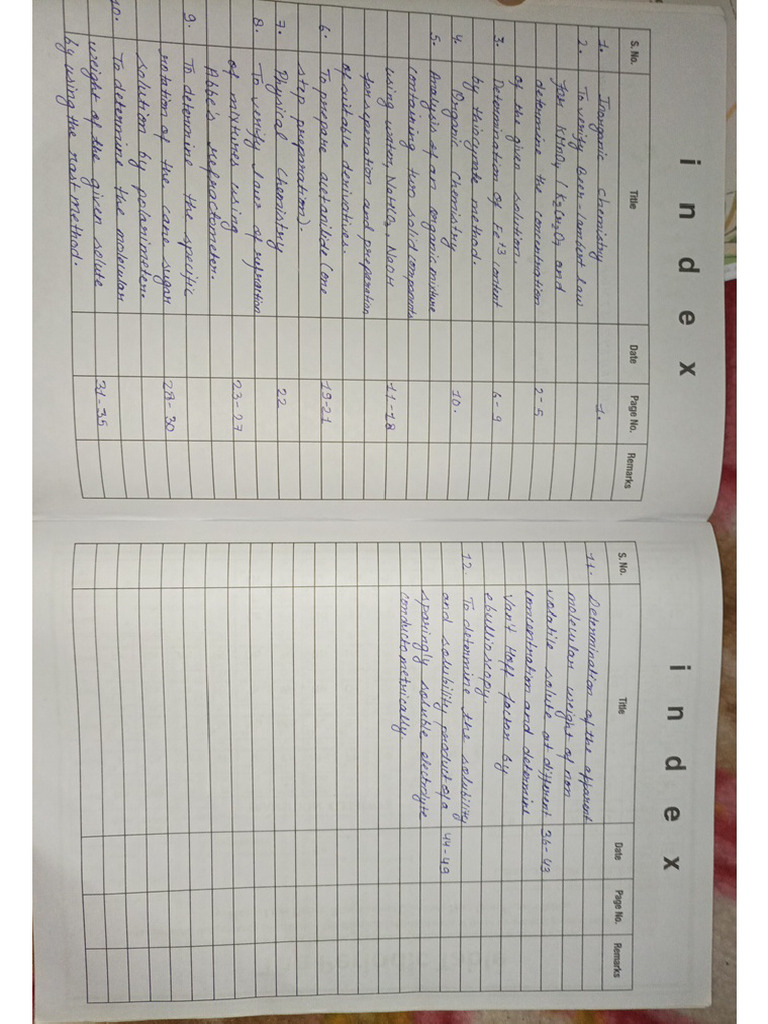 index
S. No. Title Date Page No. Remarks
1. Inorganic Chemistry 1.
2. To verify Beer-Lambert law
for KMnO4 / K2Cr2O7 and
determine the concentration 2-5
of the given solution.
3. Determination of Fe+3 content 6-9
by thiocynate method.
4. Organic Chemistry 10.
5. Analysis of an organic mixture
containing two solid components
using water, NaHCO3, NaOH 11-18
for seperation and preparation
of suitable derivatives.
6. To prepare acetanilide (one 19-21
step preparation).
7. Physical Chemistry 22
8. To verify law of refraction
of mixtures using 23-27
Abbe's refractometer.
9. To determine the specific
rotation of the cane sugar 28-30
solution by polarimeter.
10. To determine the molecular
weight of the given solute 31-35
by using the rast method.
index
S. No. Title Date Page No. Remarks
11. Determination of the apparent
molecular weight of non
volatile solute at different 36-43
concentration and determine
Van't Hoff factor by
ebullioscopy.
12. To determine the solubility
and solubility product of a 44-49
sparingly soluble electrolyte
conductometrically.